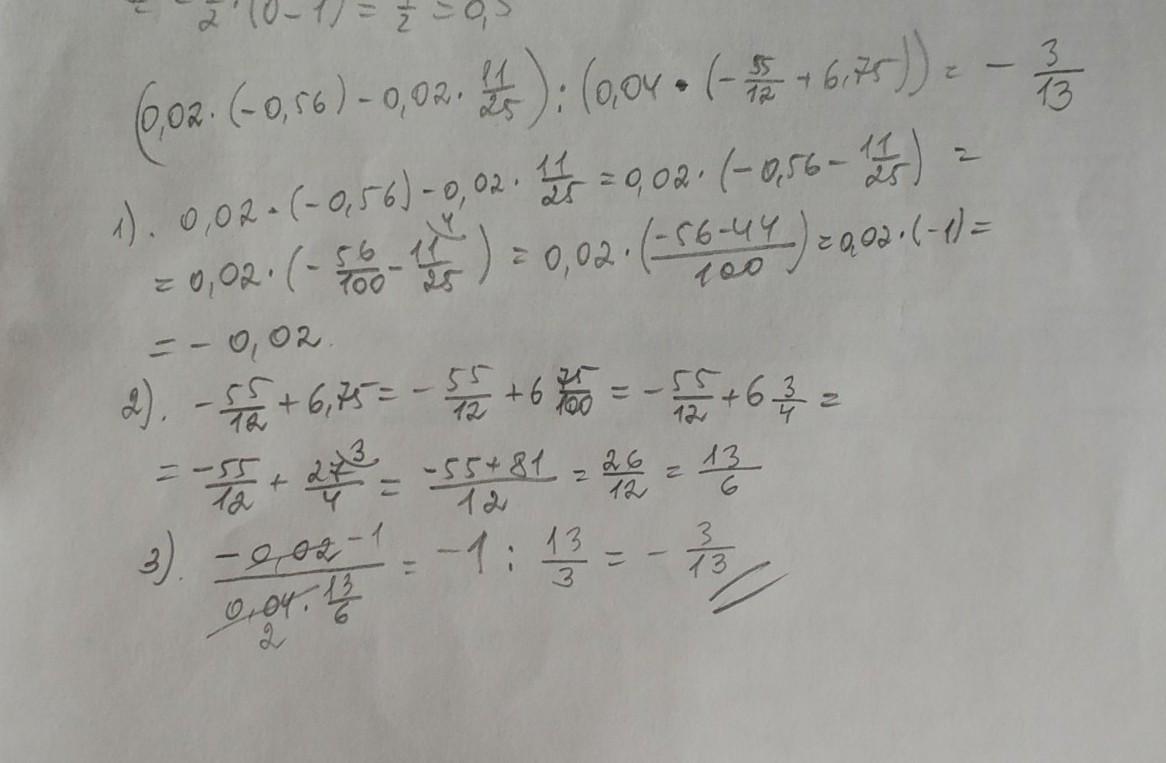 = - 1/2 · (0 - 1) = 1/2 = 0,5
(0,02 · (-0,56) - 0,02 · 11/25) : (0,04 · (- 55/12 + 6,75)) = - 3/13
1). 0,02 · (-0,56) - 0,02 · 11/25 = 0,02 · (-0,56 - 11/25) =
= 0,02 · (- 56/100 - 11/25 ⁴) = 0,02 · (-56-44/100) = 0,02 · (-1) =
= - 0,02.
2). - 55/12 + 6,75 = - 55/12 + 6 75/100 = - 55/12 + 6 3/4 =
= -55/12 + 27/4 ³ = -55+81/12 = 26/12 = 13/6
3). -0,02 -1 / 0,04 · 13/6 2 = -1 : 13/3 = - 3/13